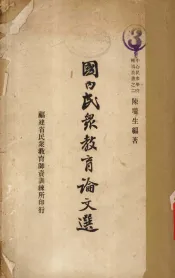 陸瑞生編著
國內民衆教育論文選
福建省民衆教育師資訓練所印行